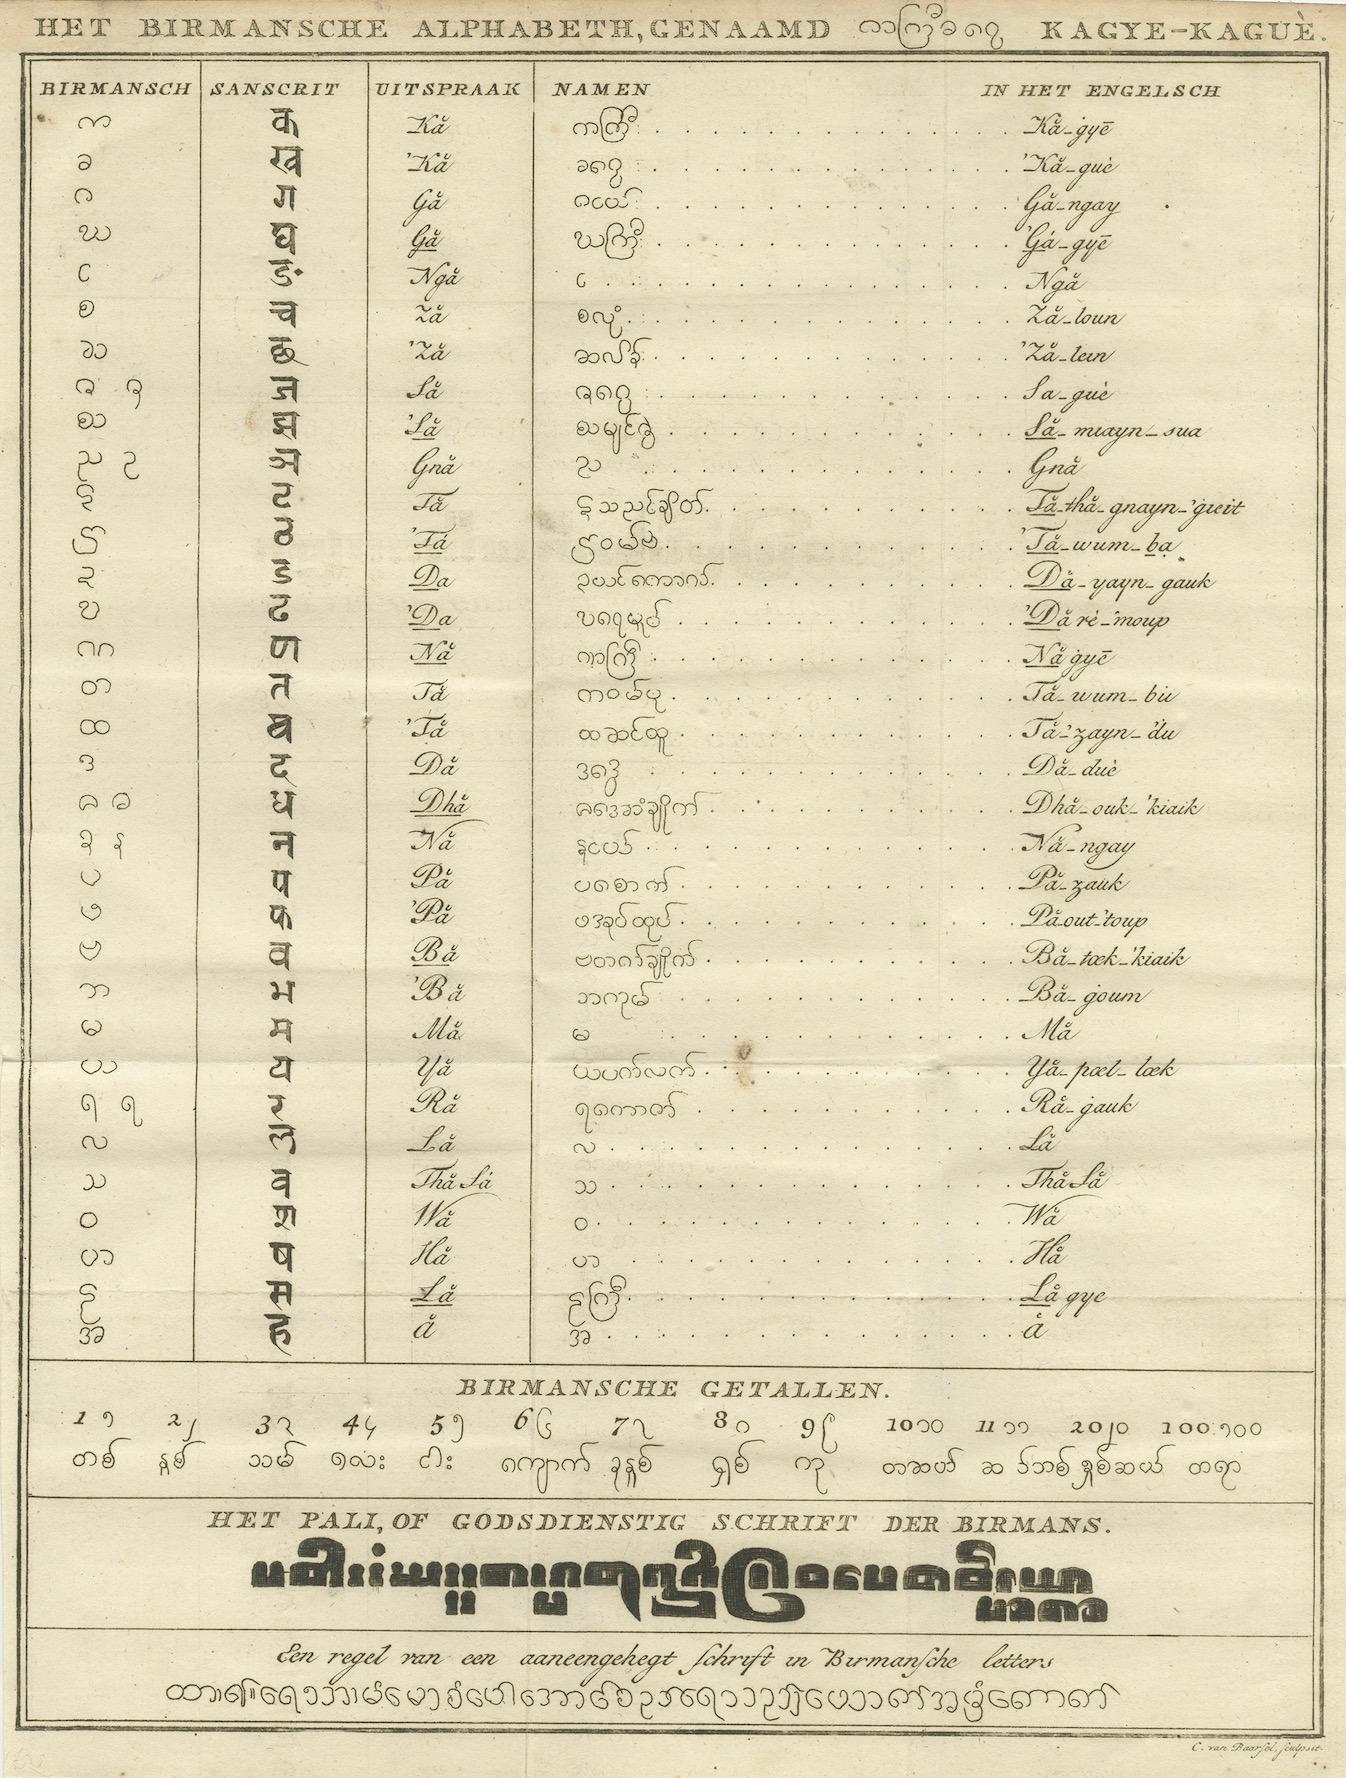 HET BIRMANSCHE ALPHABETH, GENAAMD ကာကြီးခရေဂွ KAGYE-KAGUÈ.
BIRMANSCH SANSCRIT UITSPRAAK NAMEN IN HET ENGELSCH
က क Kă ကကြီး Kă-gyē
ခ ख 'Kă ခဂွေ 'Kă-guè
ဂ ग Gă ဂငယ် Gă-ngay
ဃ घ Gă ဃကြီး 'Gă-gyē
င ङ Ngă င Ngă
စ च Ză စလုံး Ză-loun
ဆ छ 'Ză ဆလိန် 'Ză-lein
ဇ ज Să ဇဂွေ Sa-guè
ဈ झ 'Să ဈမျဉ်းဆွဲ Să-miayn-sua
ည ဉ ञ Gnă ည Gnă
ट Tă Tă-thă-gnayn-'gieit
ဌ ठ 'Tă ဌဝမ်းဗဲ 'Tă-wum-ba
ड Da Dă-yayn-gauk
ဎ ढ 'Da ဎရေမှုပ် 'Dă rè-moup
ဏ ण Nă ဏကြီး Nă gyē
တ त Tă တဝမ်ပု Tă-wum-bu
ထ थ 'Tă ထဆင်ထူ Tă-'zayn-'du
ဒ द Dă ဒဒွေ Dă-duè
ဓ ध Dhă Dhă-ouk-'kiaik
န न Nă နငယ် Nă-ngay
ပ प Pă ပစောက် Pă-zauk
ဖ फ 'Pă ဖဒုပ်ထုပ် Pă-out-'toup
ဗ व Bă ဗတက်ချိုက် Bă-tœk-'kiaik
ဘ भ 'Bă ဘကုမ် Bă-goum
မ म Mă မ Mă
ယ य Yă ယပက်လက် Yă-pœl-lœk
ရ ရ र Ră ရကောက် Ră-gauk
လ Lă လ Lă
သ व Thă Să သ Thă Să
ဝ श Wă ဝ Wă
ဟ ष Hă ဟ Hă
ဠ स Lă ဠကြီး Lă gye
အ ह ă အ ă
BIRMANSCHE GETALLEN.
1 ၁ 2 ၂ 3 ၃ 4 ၄ 5 ၅ 6 ၆ 7 ၇ 8 ၈ 9 ၉ 10 ၁၀ 11 ၁၁ 20 ၂၀ 100 ၁၀၀
တစ် နှစ် သမ် ၎လေး ငါး ကျောက် ခုနှစ် ရှစ် ကု တဆယ် ဆ ် ဘစ် နှစ်ဆယ် တရာ
HET PALI, OF GODSDIENSTIG SCHRIFT DER BIRMANS.
Een regel van een aaneengehegt schrift in Birmansche letters
C. van Baarsel, sculpsit.